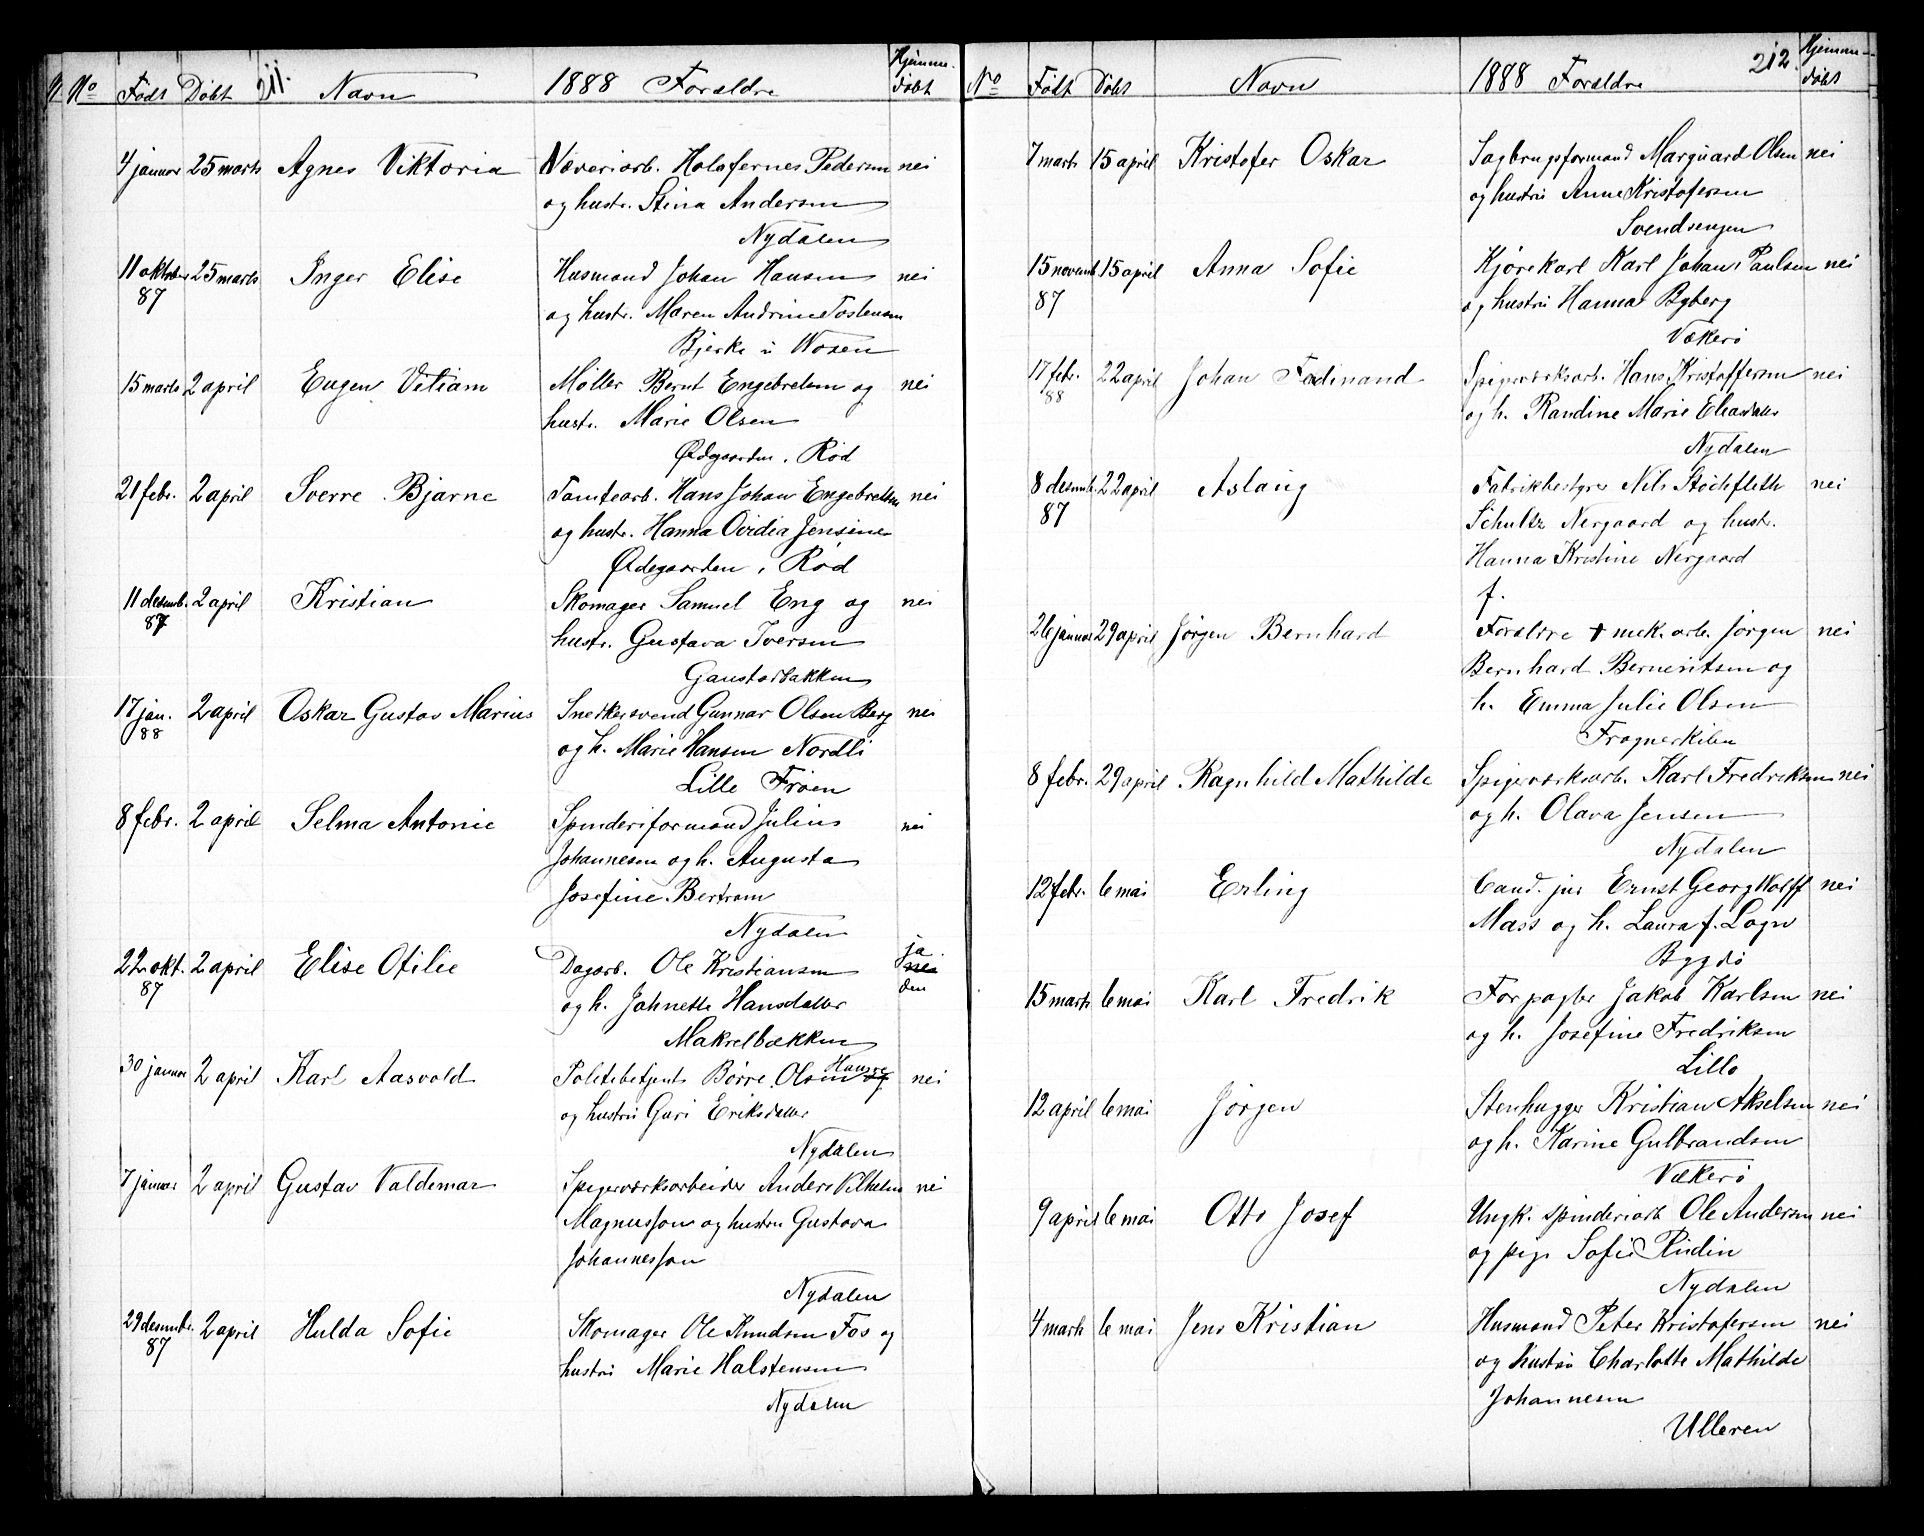 No Født Døbt 211. Navn 1888 Forældre Hjemmedøbt
4 januar 25 marts Agnes Viktoria Væveriarb. Holofernes Pedersen nei
og hustr. Stina Andersen
Nydalen
11 oktober 25 marts Inger Elise Husmand Johan Hansen nei
87 og hustr. Maren Andrine Tostensen
Bjerke i Wosen
15 marts 2 april Eugen Vitiam Møller Bernt Engebretsen og nei
hustr. Marie Olsen
Ødegaarden, Rød
21 febr. 2 april Sverre Bjarne Tomtearb. Hans Johan Engebretsen nei
og hustr. Hanna Ovidia Jensine
Ødegaarden, Rød
11 desemb. 2 april Kristian Skomager Samuel Eng og nei
87 hustr. Gustava Iversen
Gaustadbakken
17 jan. 2 april Oskar Gustav Marius Snekkersvend Gunnar Olsen Berg nei
88 og h. Marie Hansen Nordli
Lille Frøen
8 febr. 2 april Selma Antonie Spinderiformand Julius nei
Johannesen og h. Augusta
Josefine Bertram
Nydalen
22 okt. 2 april Elise Otilie Dagarb. Ole Kristiansen ja nei
87 og h. Johnette Hansdatter den
Makrelbækken
30 januar 2 april Karl Aasvald Politibetjent Børre Olsen Hansre og nei
og hustru Guri Eriksdatter
Nydalen
7 januar 2 april Gustav Valdemar Spigerværksarbeider Anders Vilhelm nei
Magnusson og hustru Gustava
Johannesson
Nydalen
29 desembr. 2 april Hulda Sofie Skomager Ole Knudsen Fos og
87 hustru Marie Halstensen
Nydalen
No Født Døbt Navn 1888 Forældre 212. Hjemmedøbt
7 marts 15 april Kristofer Oskar Sagbrugsformand Marguard Olsen nei
og hustru Anne Kristofersen
Svendsengen
15 novemb. 15 april Anna Sofie Kjørekarl Karl Johan Paulsen nei
87 og hustru Hanna Byberg
Vækerø
17 febr. 22 april Johan Fedinand Spigerværksarb. Hans Kristoffersen nei
88 og h. Randine Marie Eliasdatter
Nydalen
8 desemb. 22 april Aslaug Fabrikbestyrer Nils Stochfleth nei
87 Schultz Nergaard og hustr.
Hanna Kristine Nergaard
f.
26 januar 29 april Jørgen Bernhard Forældre † mek. arb. Jørgen nei
Bernhard Berneritsen og
h. Emma Julie Olsen
Frognerkilen
8 febr. 29 april Ragnhild Mathilde Spigerværksarb. Karl Fredriksen nei
og h. Olava Jensen
Nydalen
12 febr. 6 mai Erling Cand. jur Ernst Georg Wolff nei
Mass og h. Laura f. Logn
Bygdø
15 marts 6 mai Karl Fredrik Forpagter Jakob Karlsen nei
og h. Josefine Fredriksen
Lillo
12 april 6 mai Jørgen Stenhugger Kristian Akselsen nei
og h. Karine Gulbrandsen
Vækerø
9 april 6 mai Otto Josef Ungk. spinderiarb Ole Andersen nei
og pige Sofie Rudin
Nydalen
4 marts 6 mai Jens Kristian Husmand Peter Kristofersen nei
og hustru Charlotte Mathilde
Johannesen
Ulleren